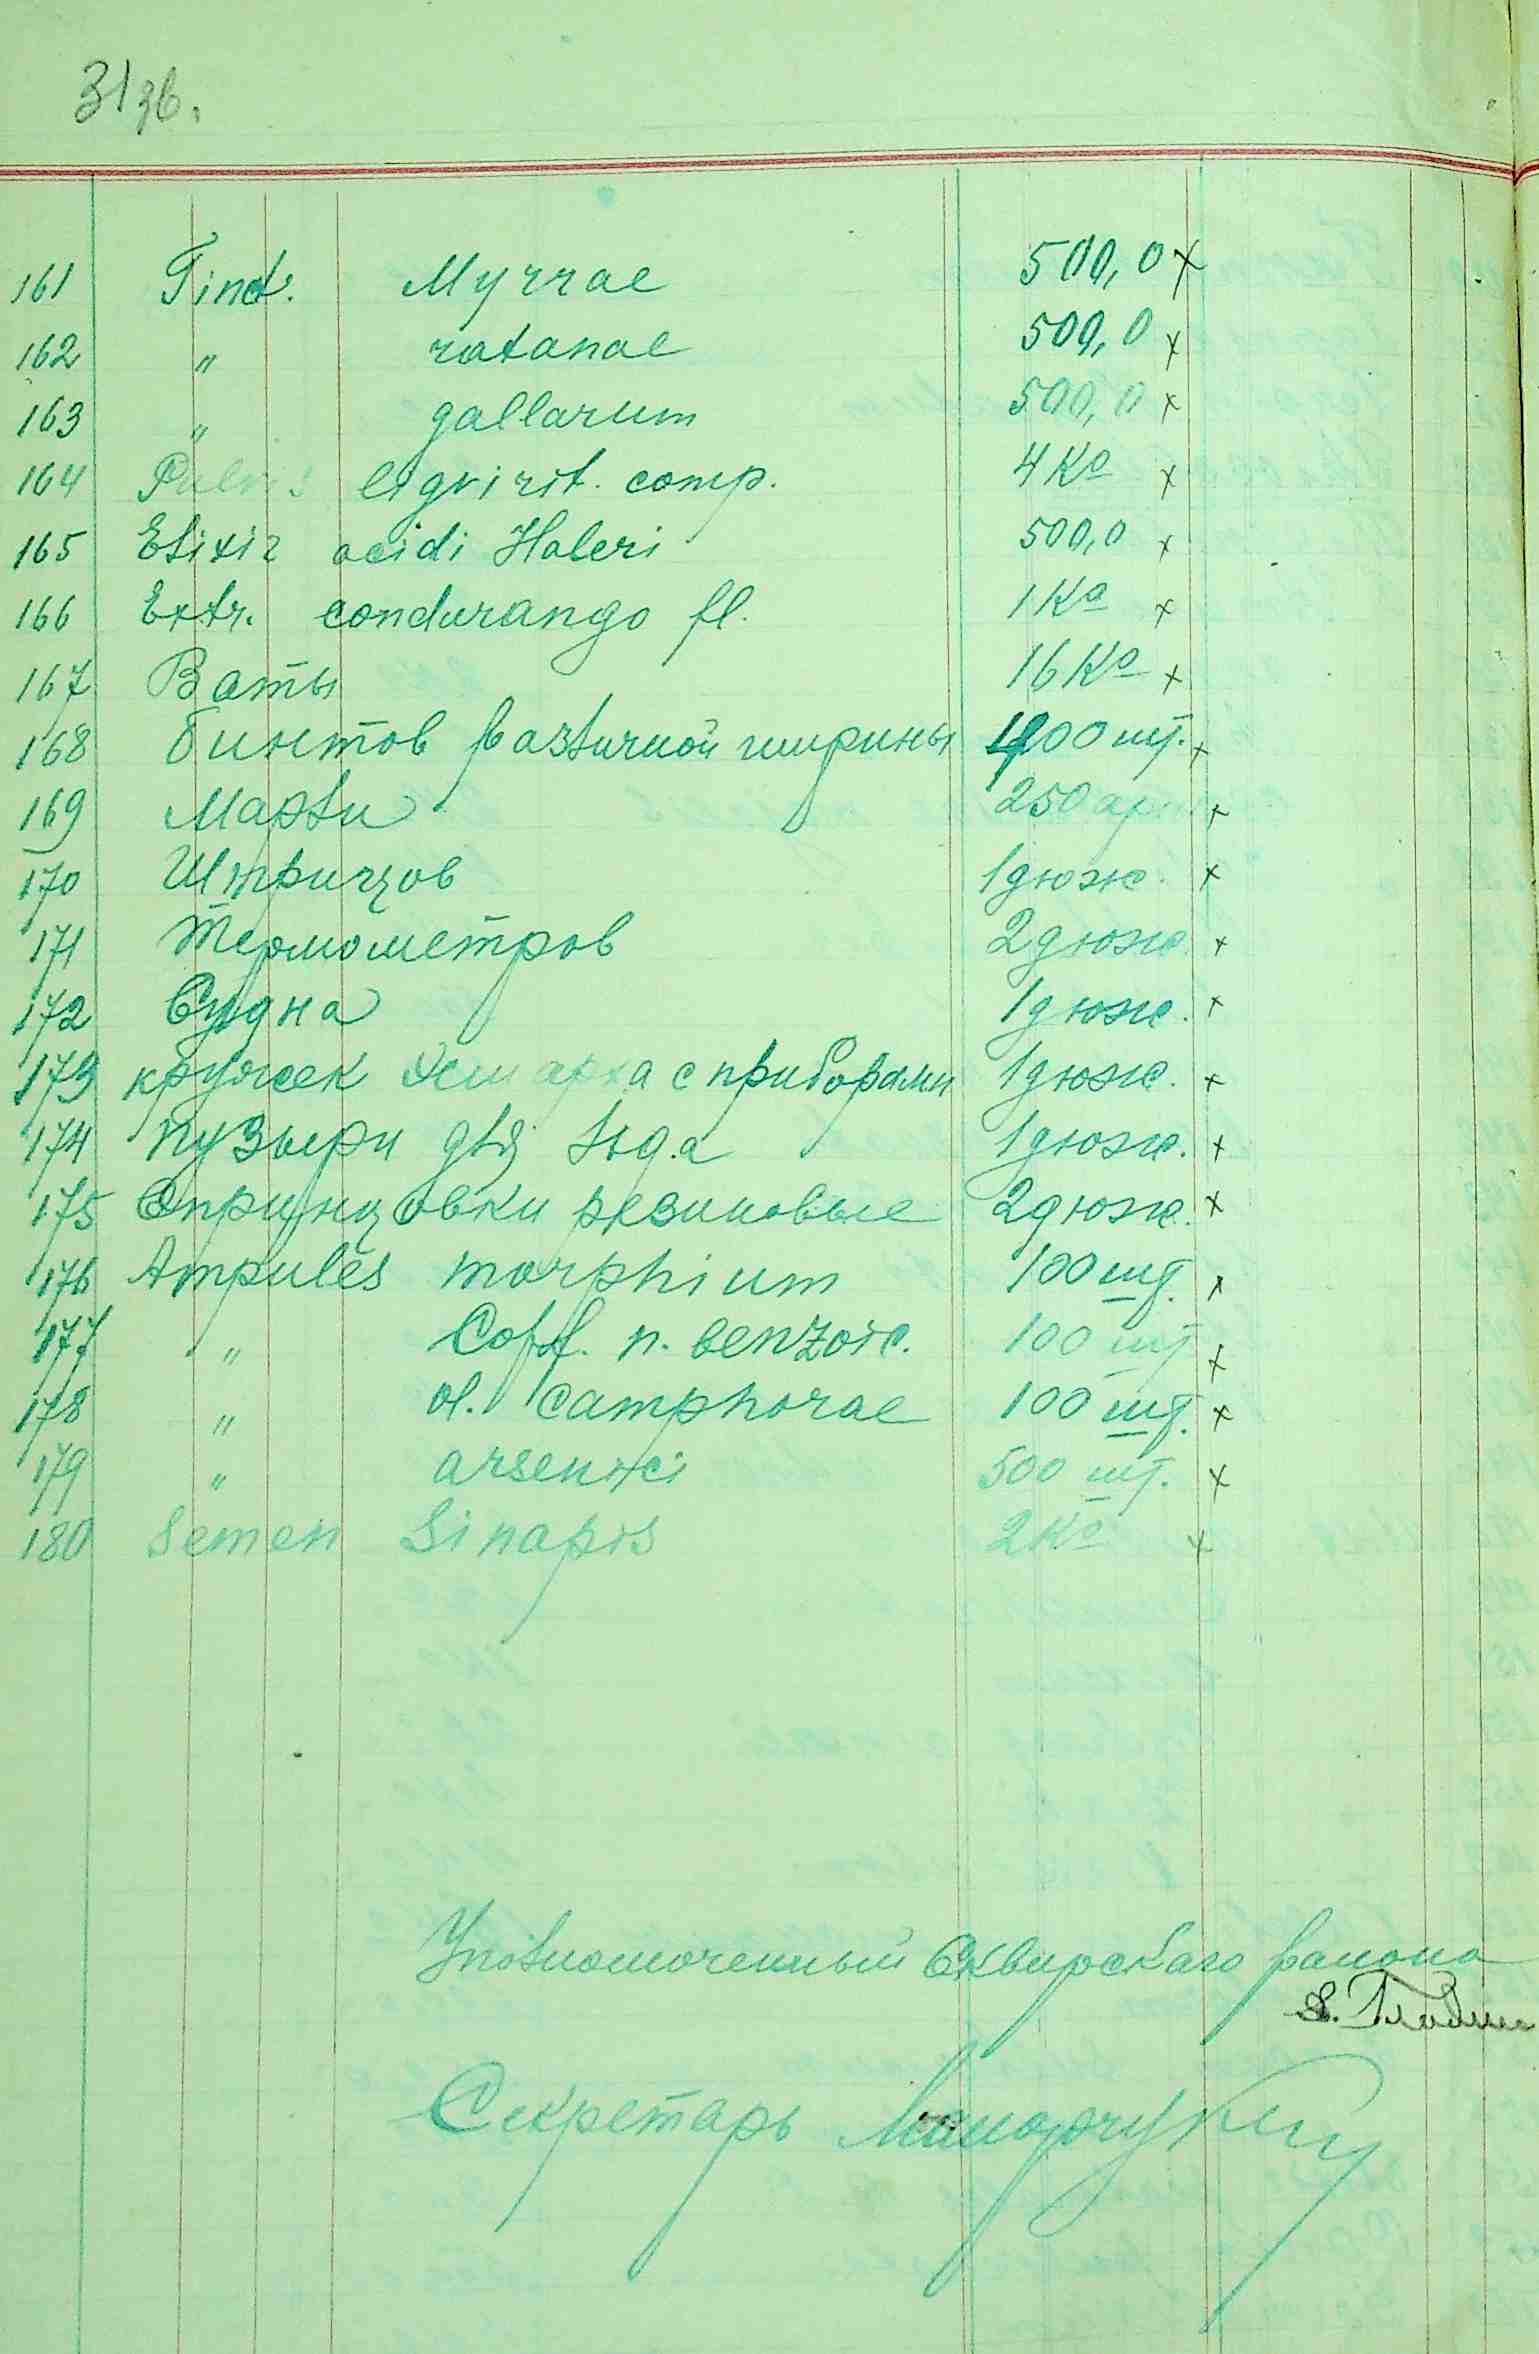 31 зв.
161 Tinct. Myrrae 500,0 x
162 " ratanae 500,0 x
163 " gallarum 500,0 x
164 Pulvis liqvirit. comp. 4 Ko x
165 Elixir acidi Haleri 500,0 x
166 Extr. condurango fl. 1 Ko x
167 Ваты 16 Ko x
168 бинтов различной ширины 1000 шт. x
169 Марли 250 арш x
170 Штрицов 1 дюж. x
171 Термометров 2 дюж. x
172 Судна 1 дюж. x
173 кружек Эсмарха с приборами 1 дюж. x
174 пузыри для льда 1 дюж. x
175 Спринцовки резиновые 2 дюж. x
176 Ampules morphium 100 шт. x
177 " Coff. n. benzoic. 100 шт x
178 " ol. camphorae 100 шт. x
179 " arsenici 500 шт. x
180 Semen Sinapis 2 Ko x
Уполномоченный Сквирскаго района
Секретарь